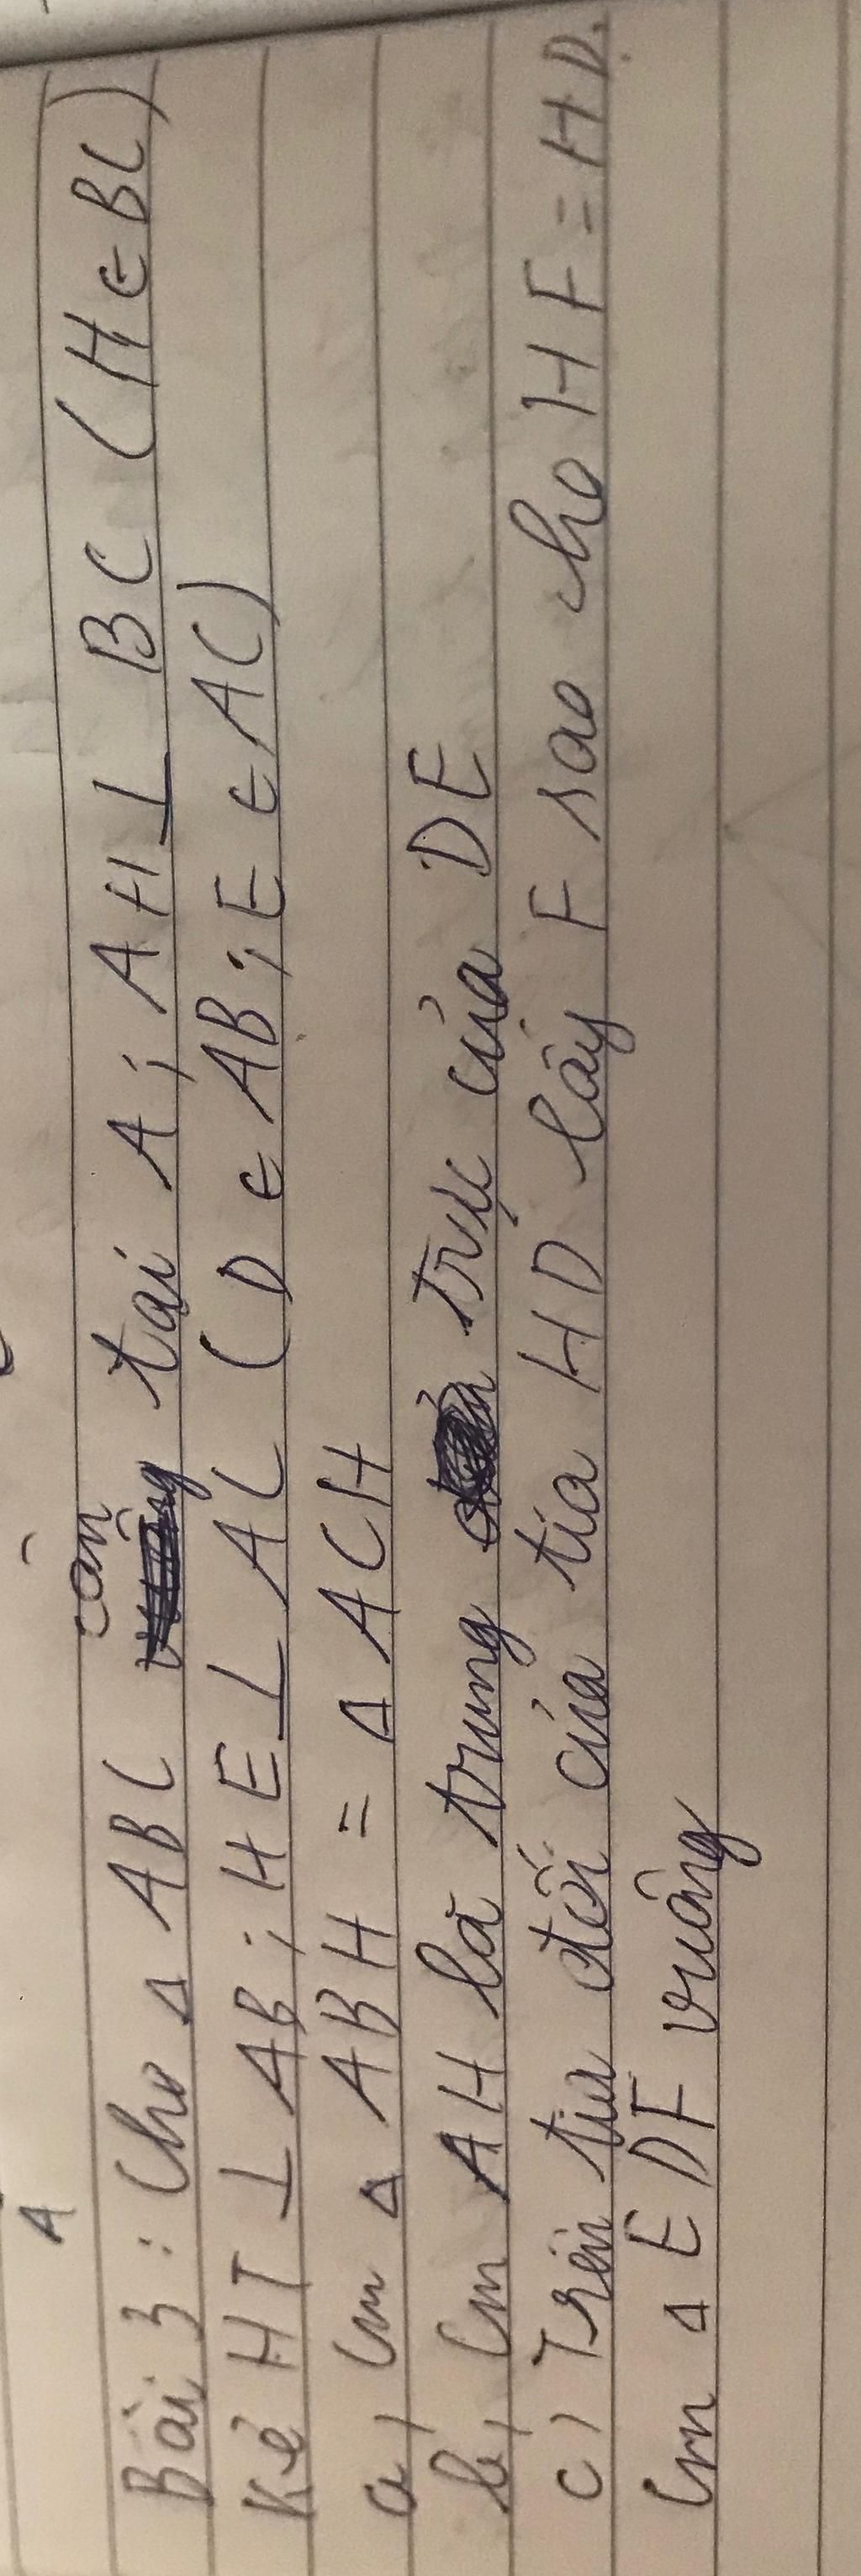 A
Bài 3 : Cho Δ ABC cân tại A ; AH ⊥ BC ( H ∈ BC )
Kẻ HI ⊥ AB ; HE ⊥ AC ( D ∈ AB ; E ∈ AC )
a, Cm Δ ABH = Δ ACH
b, Cm AH là trung trực của DE
c) Trên tia đối của tia HD lấy F sao cho HF = HD.
Cm Δ EDF vuông